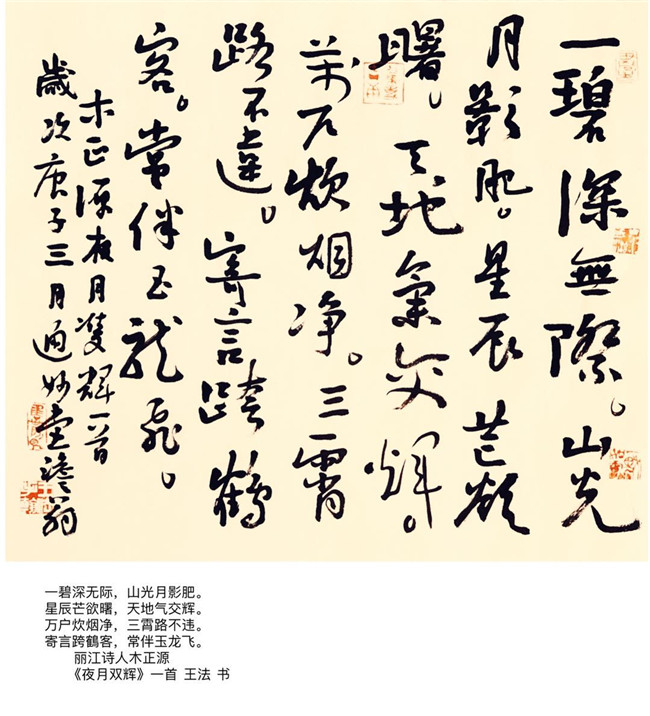 一碧深無際。山光
月影肥。星辰芒欲
曙。天地氣交輝。
萬户炊烟净。三霄
路不違。寄言跨鶴
客。常伴玉龍飛。
木正源夜月雙輝一首
歲次庚子三月通妙堂澹翁
一碧深无际，山光月影肥。
星辰芒欲曙，天地气交辉。
万户炊烟净，三霄路不违。
寄言跨鶴客，常伴玉龙飞。
丽江诗人木正源
《夜月双辉》一首 王法 书